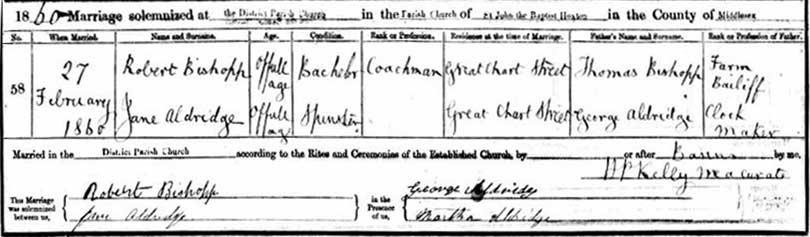 1860 Marriage solemnized at the District Parish Church in the Parish Church of St John the Baptist Hoxton in the County of Middlesex
No. When Married. Name and Surname. Age. Condition. Rank or Profession. Residence at the time of Marriage. Father's Name and Surname. Rank or Profession of Father.
58 27 February 1860 Robert Bishopp Of full age Bachelor Coachman Great Chart Street Thomas Bishopp Farm Bailiff
Jane Aldridge Of full age Spinster Great Chart Street George Aldridge Clock Maker
Married in the District Parish Church according to the Rites and Ceremonies of the Established Church, by or after Banns by me,
Kelly M a Curate
This Marriage was solemnized between us, Robert Bishopp Jane Aldridge in the Presence of us, George Aldridge Martha Aldridge